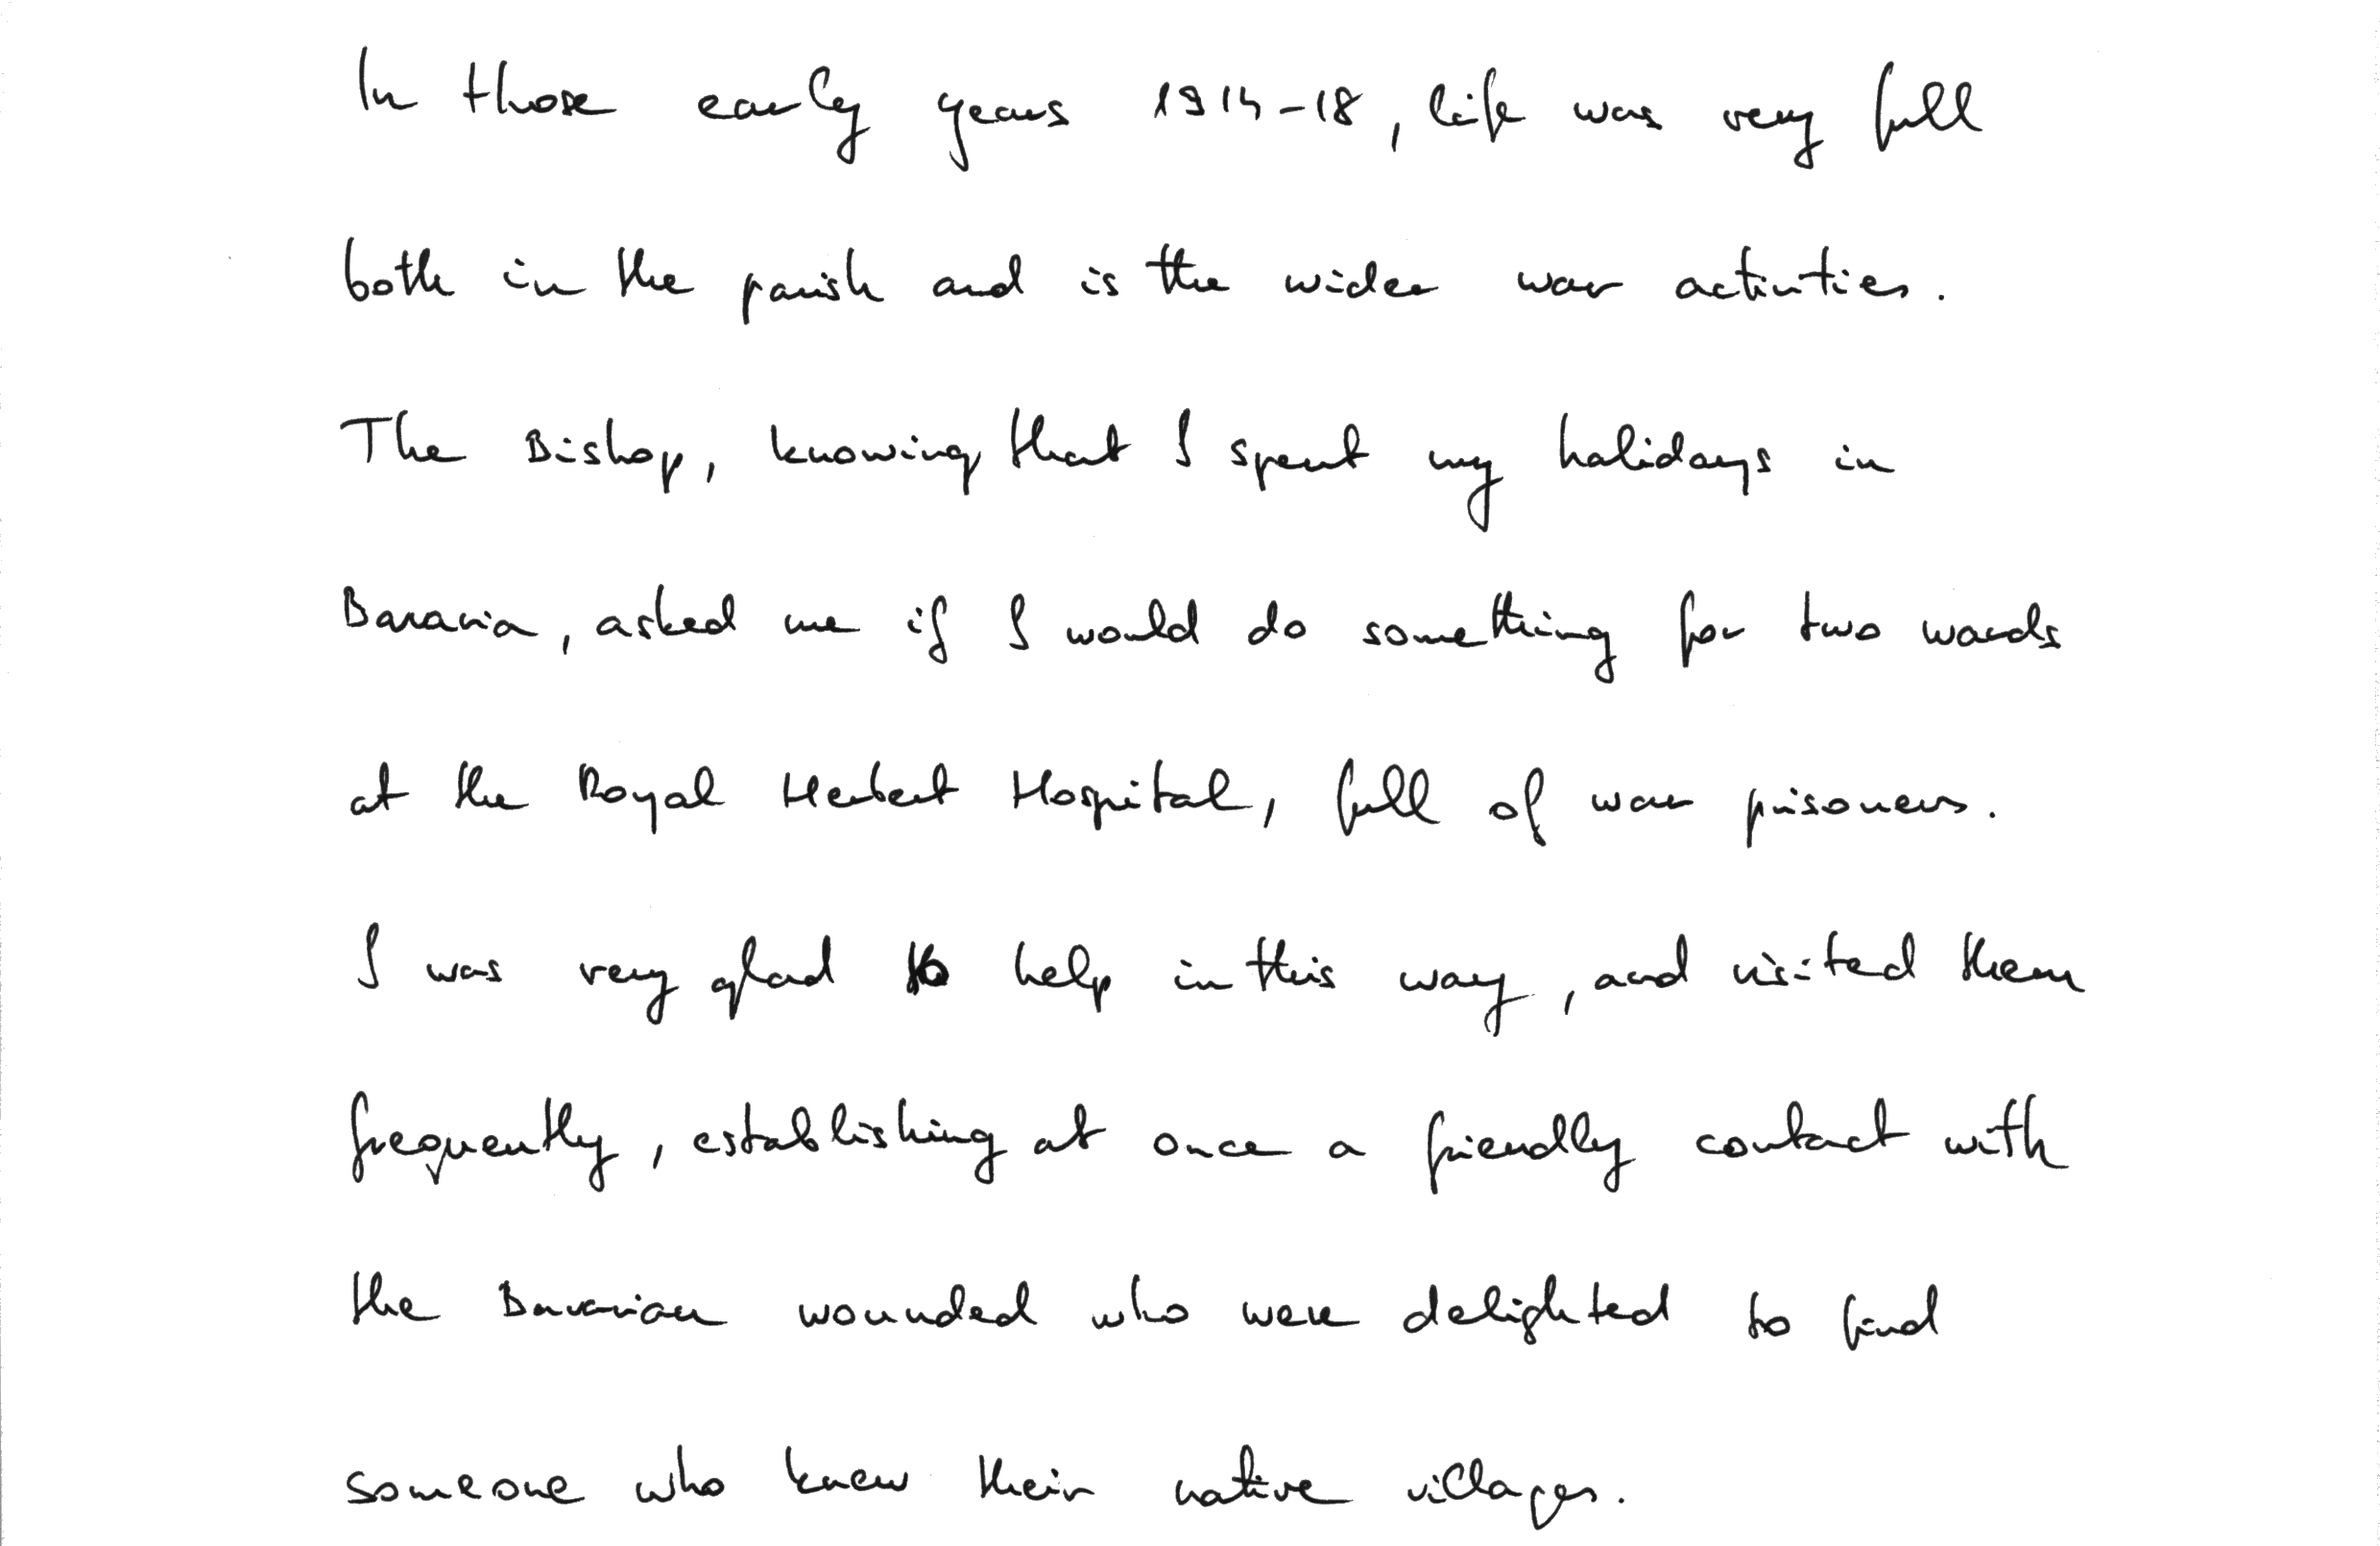 In those early years 1914-18, life was very full
both in the parish and is the wider war activities.
The Bishop, knowing that I spent my holidays in
Bavaria, asked me if I would do something for two wards
at the Royal Herbert Hospital, full of war prisoners.
I was very glad to help in this way, and visited them
frequently, establishing at once a friendly contact with
the Bavarian wounded who were delighted to find
someone who knew their native villages.